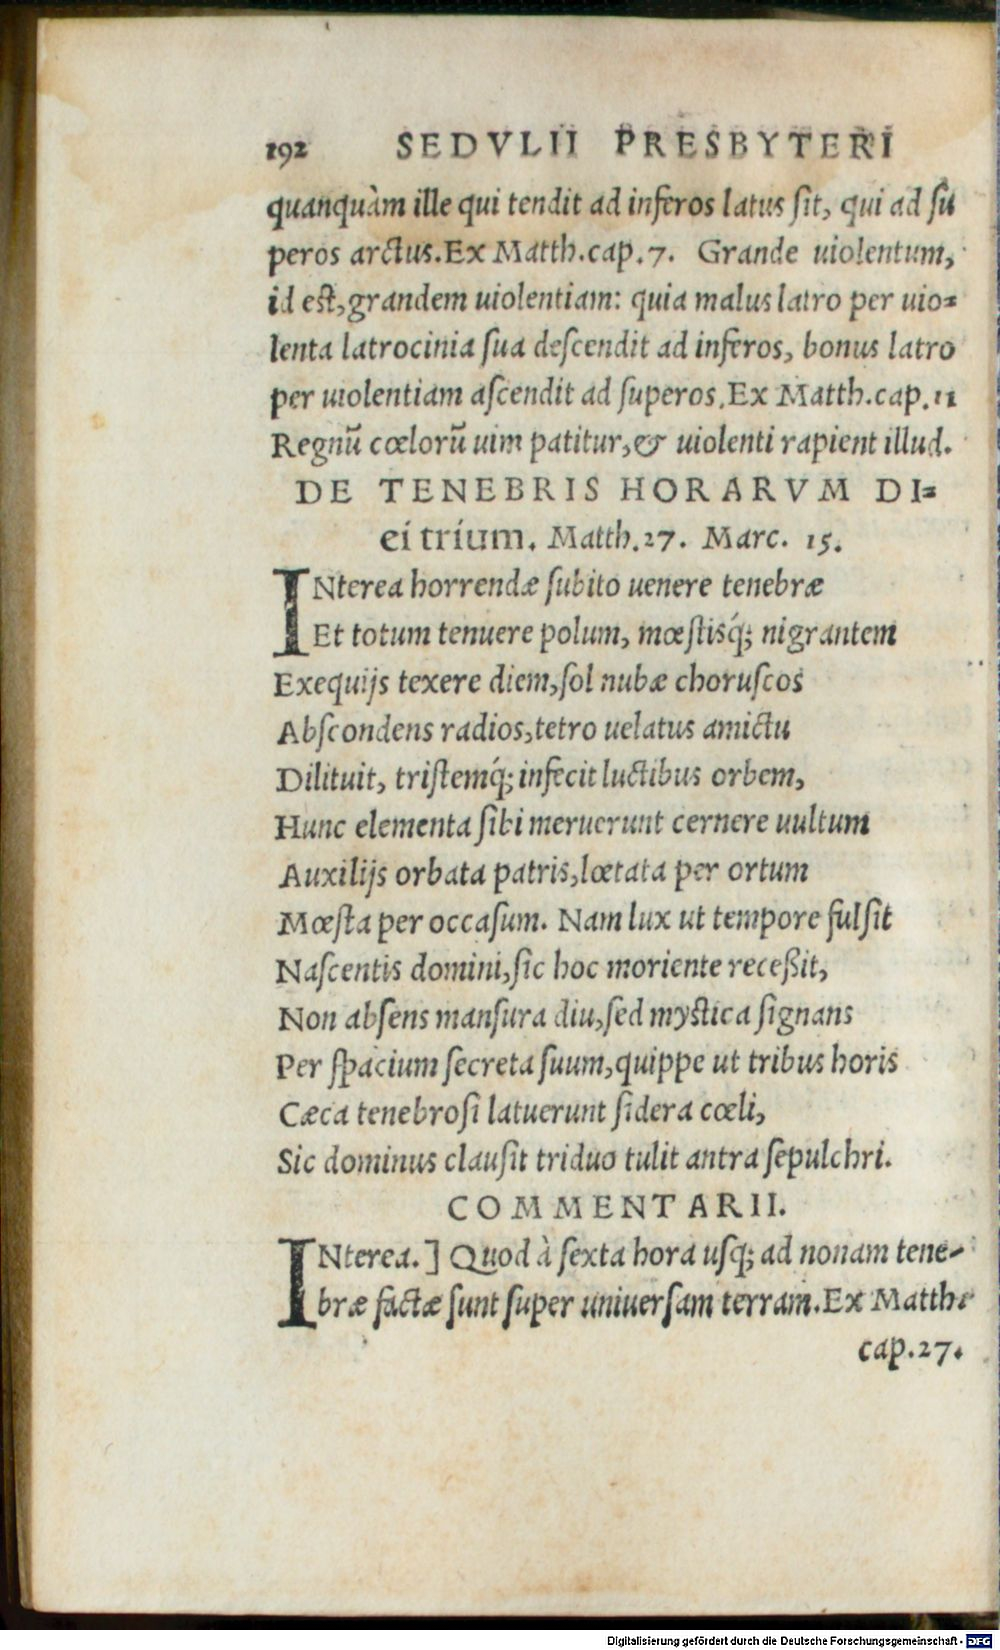 192 SEDVLII PRESBYTERI
quanquàm ille qui tendit ad inferos latus sit, qui ad su
peros arctus. Ex Matth. cap. 7. Grande uiolentum,
id est, grandem uiolentiam: quia malus latro per uio=
lenta latrocinia sua descendit ad inferos, bonus latro
per uiolentiam ascendit ad superos. Ex Matth. cap. 11
Regnū cœlorū uim patitur, & uiolenti rapient illud.
DE TENEBRIS HORARVM DI=
ei trium. Matth. 27. Marc. 15.
INterea horrendæ subito uenere tenebræ
Et totum tenuere polum, mœstisq́; nigrantem
Exequijs texere diem, sol nubæ choruscos
Abscondens radios, tetro uelatus amictu
Dilituit, tristemq́; infecit luctibus orbem,
Hunc elementa sibi meruerunt cernere uultum
Auxilijs orbata patris, lœtata per ortum
Mœsta per occasum. Nam lux ut tempore fulsit
Nascentis domini, sic hoc moriente receßit,
Non absens mansura diu, sed mystica signans
Per spacium secreta suum, quippe ut tribus horis
Cæca tenebrosi latuerunt sidera cœli,
Sic dominus clausit triduo tulit antra sepulchri.
COMMENTARII.
INterea.] Quod à sexta hora usq; ad nonam tene-
bræ factæ sunt super uniuersam terram. Ex Matth.
cap. 27.
Digitalisierung gefördert durch die Deutsche Forschungsgemeinschaft - DFG